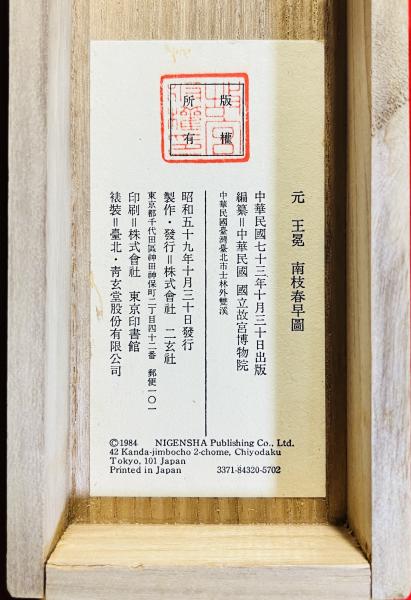 版權
所有
元 王冕 南枝春早圖
中華民國七十三年十月三十日出版
編纂＝中華民國 國立故宮博物院
中華民國臺灣臺北市士林外雙溪
昭和五十九年十月三十日發行
製作・發行＝株式會社 二玄社
東京都千代田區神田神保町二丁目四十二番 郵便一〇一
印刷＝株式會社 東京印書館
裱裝＝臺北・靑玄堂股份有限公司
©1984 NIGENSHA Publishing Co., Ltd.
42 Kanda-jimbocho 2-chome, Chiyodaku
Tokyo, 101 Japan
Printed in Japan 3371-84320-5702